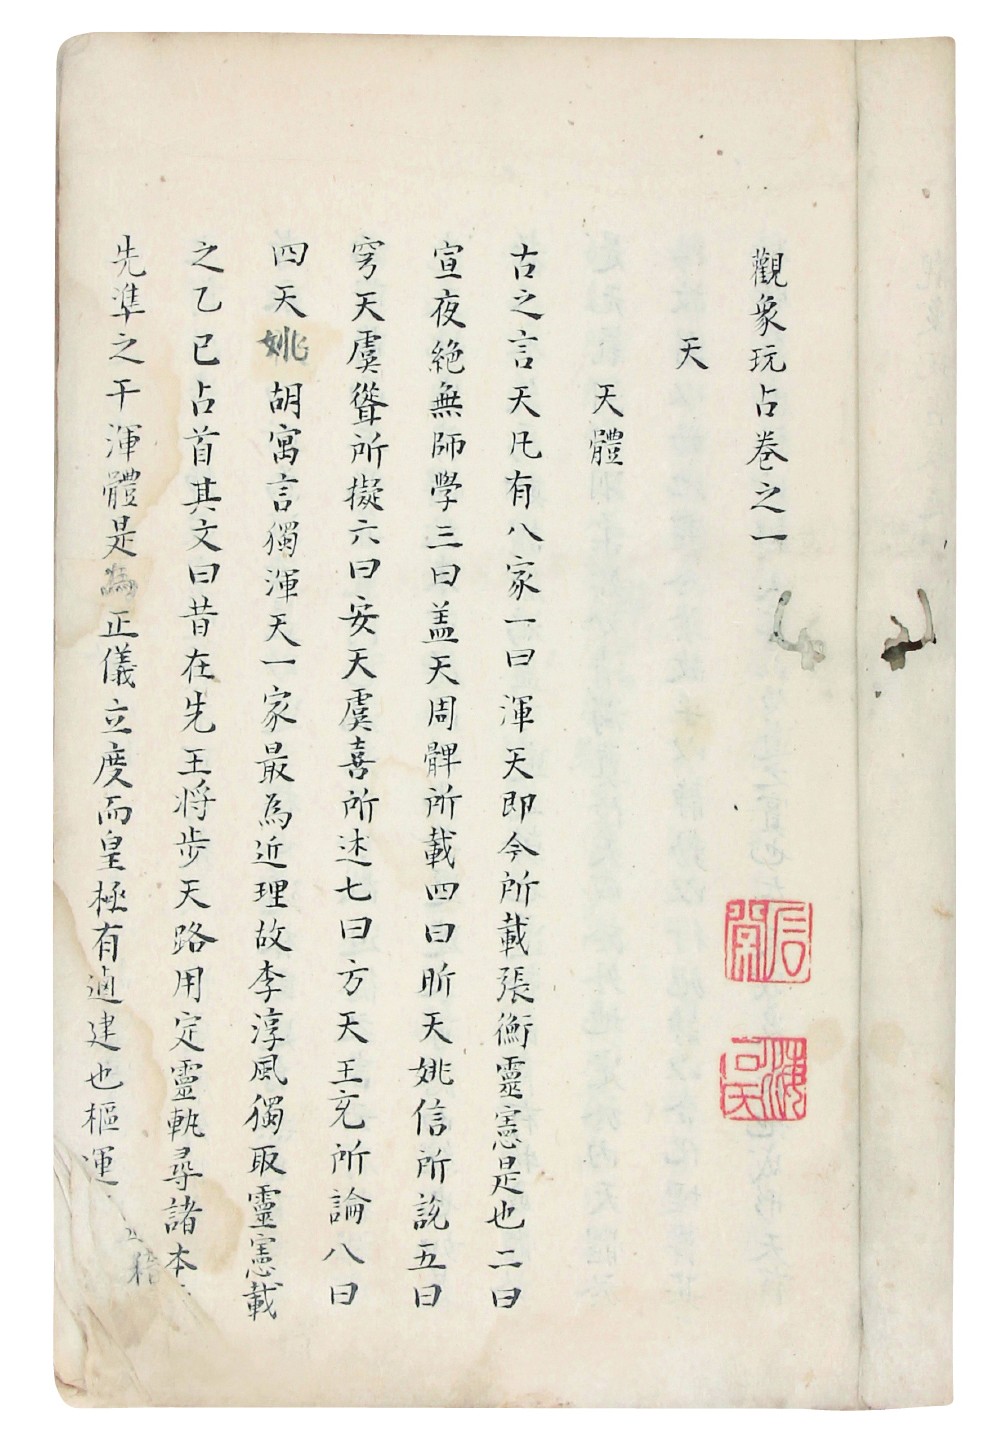 觀象玩占卷之一
天
天體
古之言天凡有八家一曰渾天即今所載張衡靈憲是也二曰
宣夜絶無師學三曰盖天周髀所載四曰昕天姚信所説五曰
穹天虞聳所擬六曰安天虞喜所述七曰方天王充所論八曰
四天姚胡寓言獨渾天一家最為近理故李淳風獨取靈憲載
之乙巳占首其文曰昔在先王将步天路用定靈軌尋諸本
先準之于渾體是為正儀立度而皇極有逌建也樞運
稽